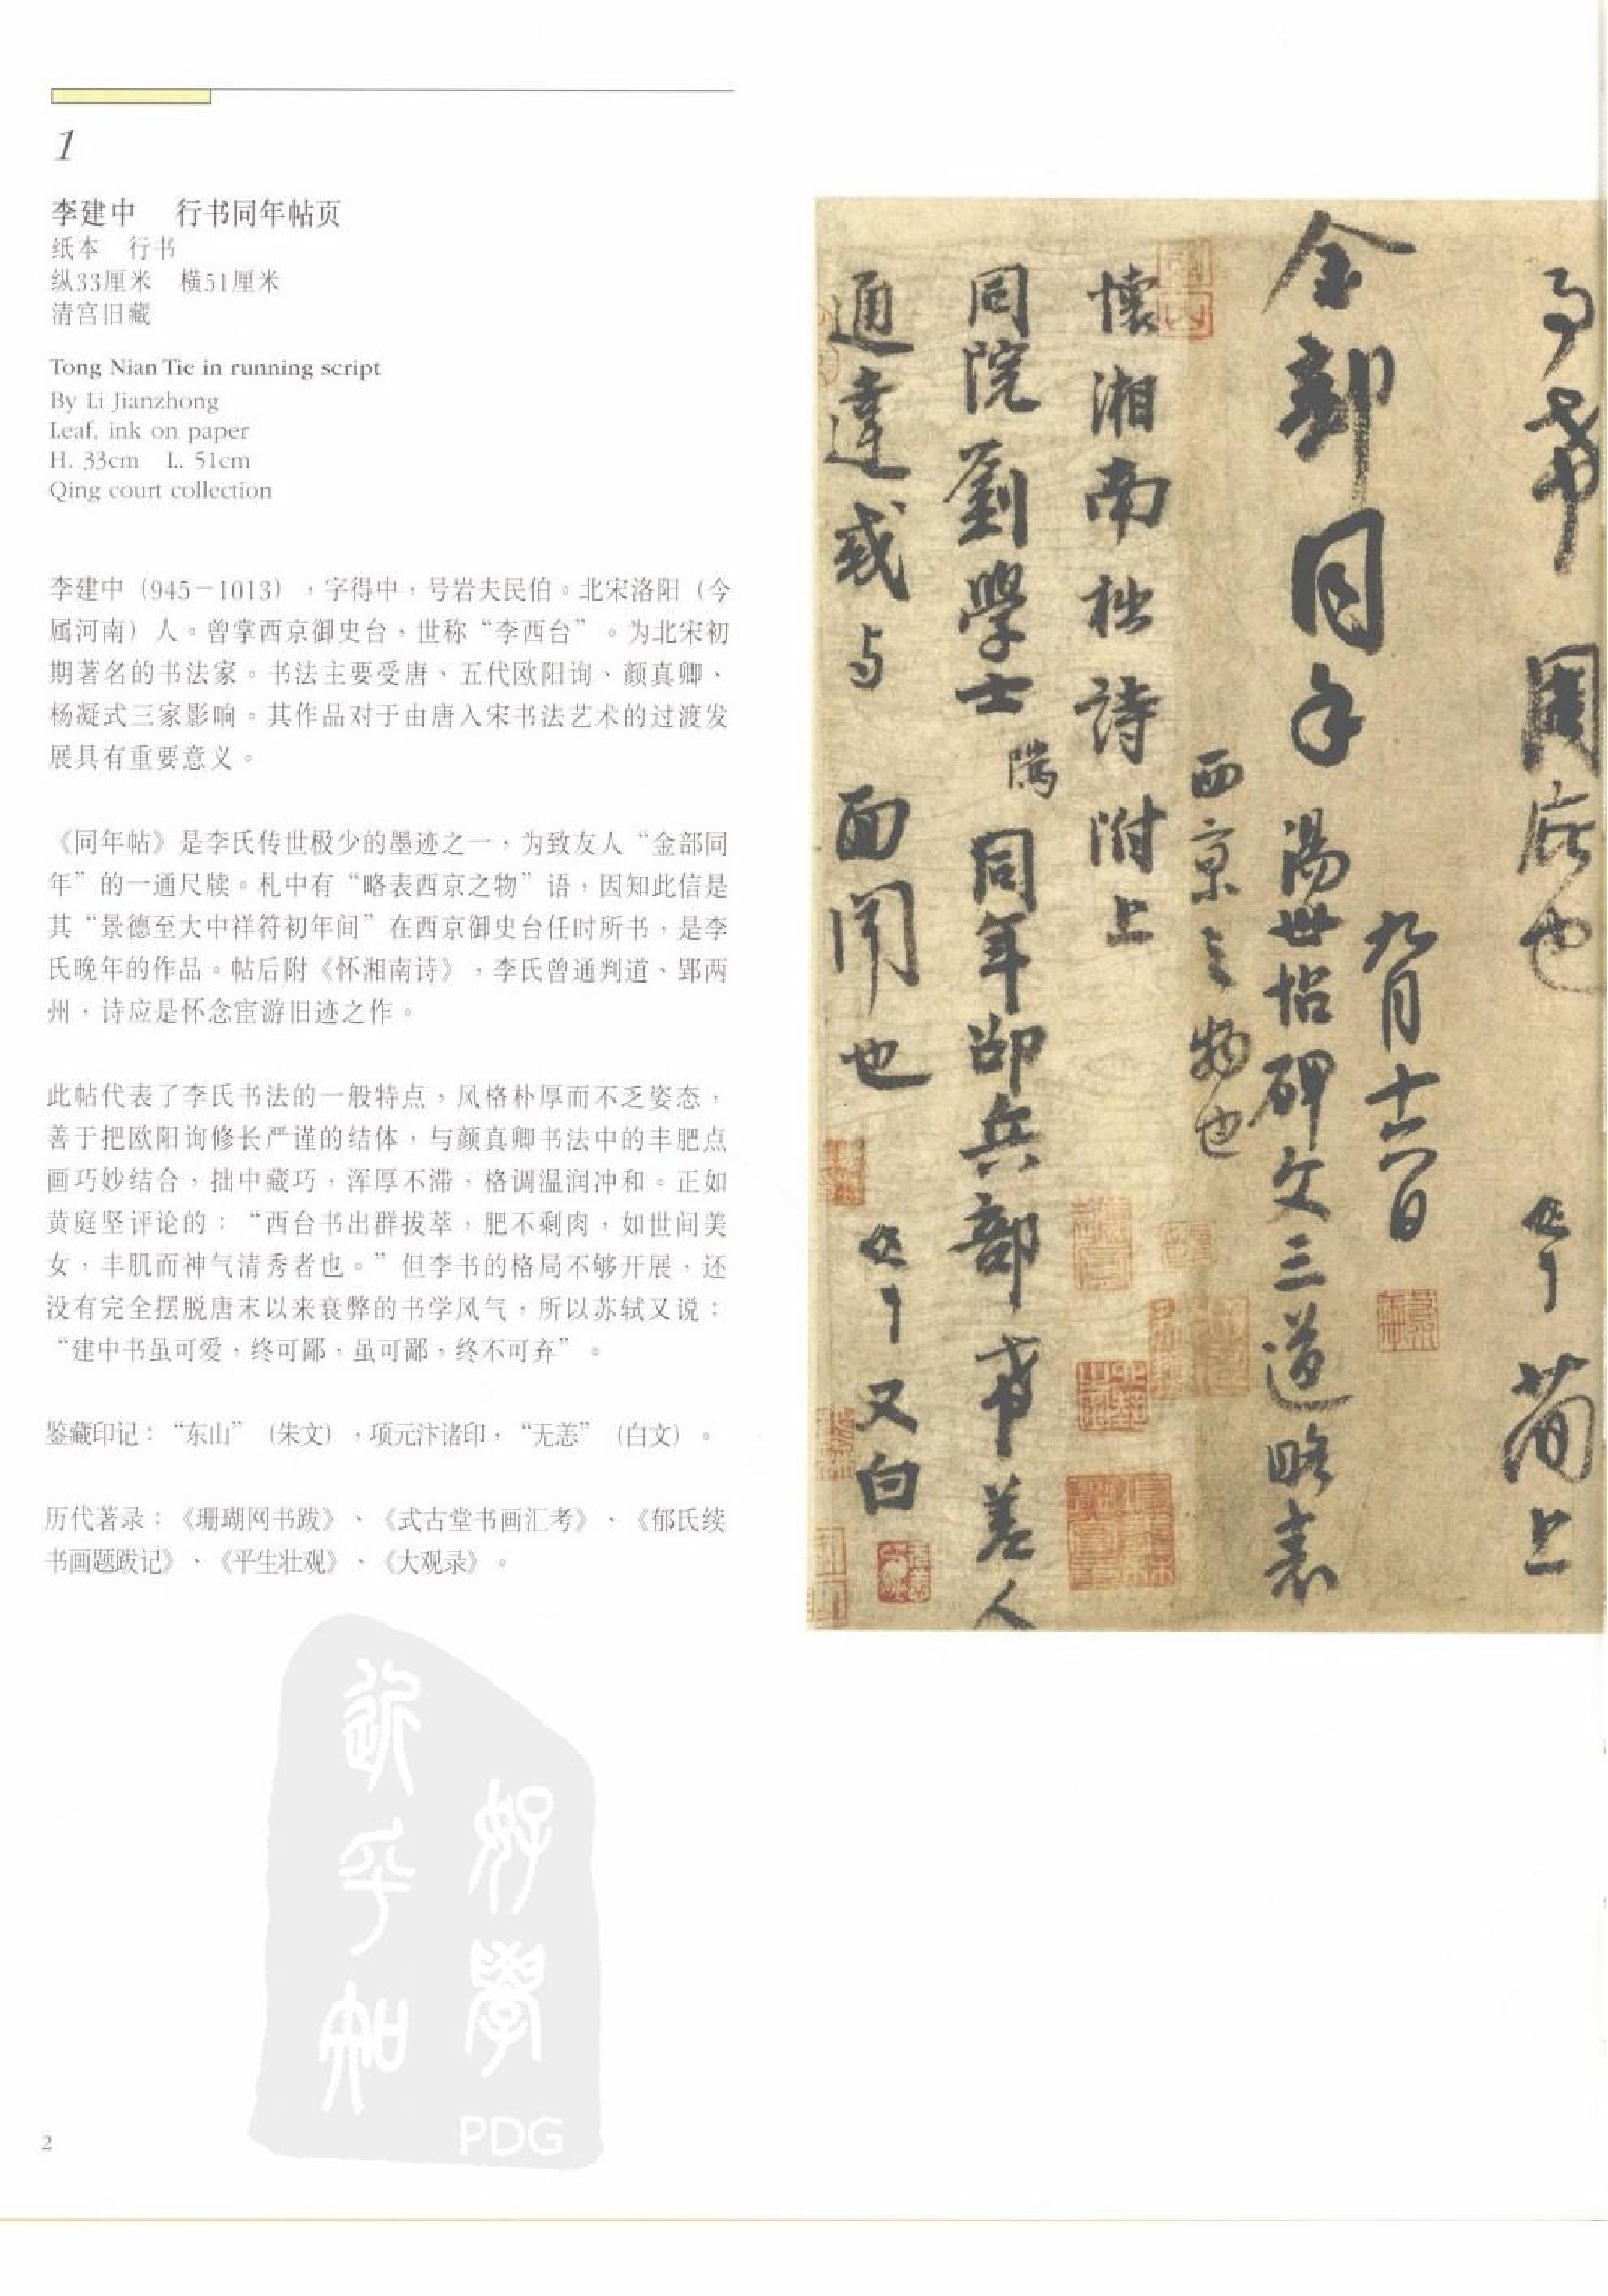 1
李建中 行书同年帖页
纸本 行书
纵33厘米 横51厘米
清宫旧藏
Tong Nian Tie in running script
By Li Jianzhong
Leaf, ink on paper
H. 33cm L. 51cm
Qing court collection
李建中（945－1013），字得中，号岩夫民伯。北宋洛阳（今
属河南）人。曾掌西京御史台，世称“李西台”。为北宋初
期著名的书法家。书法主要受唐、五代欧阳询、颜真卿、
杨凝式三家影响。其作品对于由唐入宋书法艺术的过渡发
展具有重要意义。
《同年帖》是李氏传世极少的墨迹之一，为致友人“金部同
年”的一通尺牍。札中有“略表西京之物”语，因知此信是
其“景德至大中祥符初年间”在西京御史台任时所书，是李
氏晚年的作品。帖后附《怀湘南诗》，李氏曾通判道、郢两
州，诗应是怀念宦游旧迹之作。
此帖代表了李氏书法的一般特点，风格朴厚而不乏姿态，
善于把欧阳询修长严谨的结体，与颜真卿书法中的丰肥点
画巧妙结合，拙中藏巧，浑厚不滞，格调温润冲和。正如
黄庭坚评论的：“西台书出群拔萃，肥不剩肉，如世间美
女，丰肌而神气清秀者也。”但李书的格局不够开展，还
没有完全摆脱唐末以来衰弊的书学风气，所以苏轼又说：
“建中书虽可爱，终可鄙，虽可鄙，终不可弃”。
鉴藏印记：“东山”（朱文），项元汴诸印，“无恙”（白文）。
历代著录：《珊瑚网书跋》、《式古堂书画汇考》、《郁氏续
书画题跋记》、《平生壮观》、《大观录》。
周庇也 简上
九月十六日
金部同年 湯世怗碑文三道略表
西京之物也
懷湘南拙詩附上
同院劉學士 隲 同年邵兵部 差人
通達或与 面聞也 又白
好學
近乎知
PDG
2